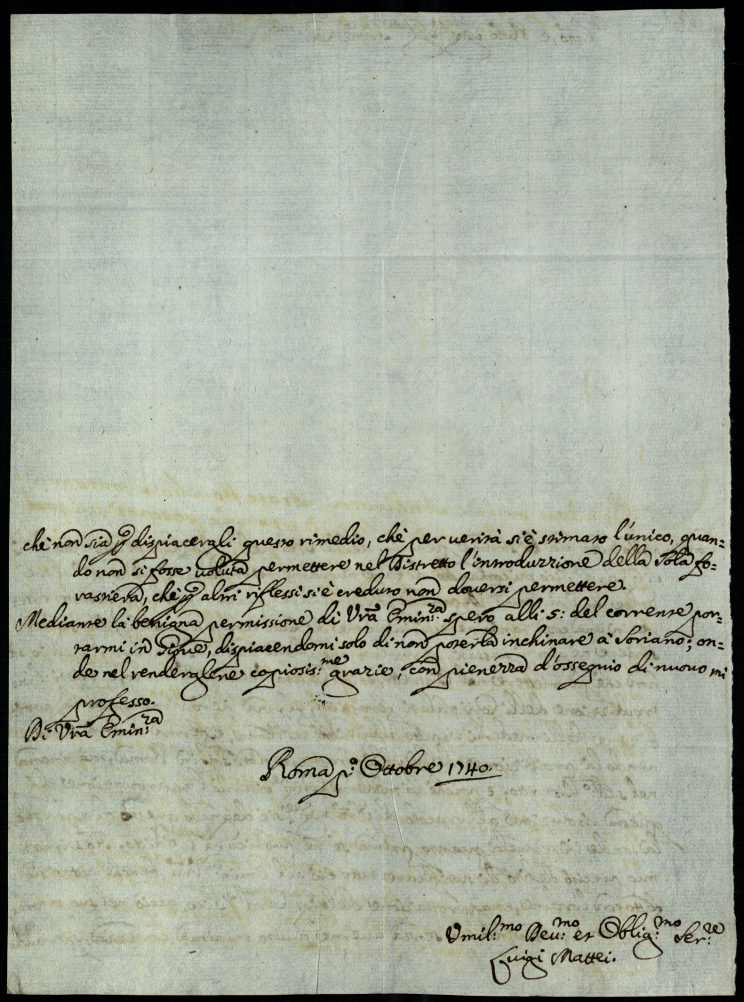 che non sia p dispiacergli questo rimedio, che per verità si è stimato l'unico, quan=
do non si fosse voluta permettere nel Distretto l'introduzzione della sola fo=
rastiera, che p altri riflessi si è creduto non doversi permettere.
Mediante la benigna permissione di Vrã Emin:za spero alli 5: del corrente por=
tarmi in, dispiacendomi solo di non poterla inchinare a Soriano; on=
de nel renderglene copiosis:me grazie, con pienezza d'ossequio di nuovo mi
professo.
Di Vrã Emin:za
Roma p:o Ottobre 1740.
Umil:mo Dev:mo et Oblig:mo Ser:re
Luigi Mattei.